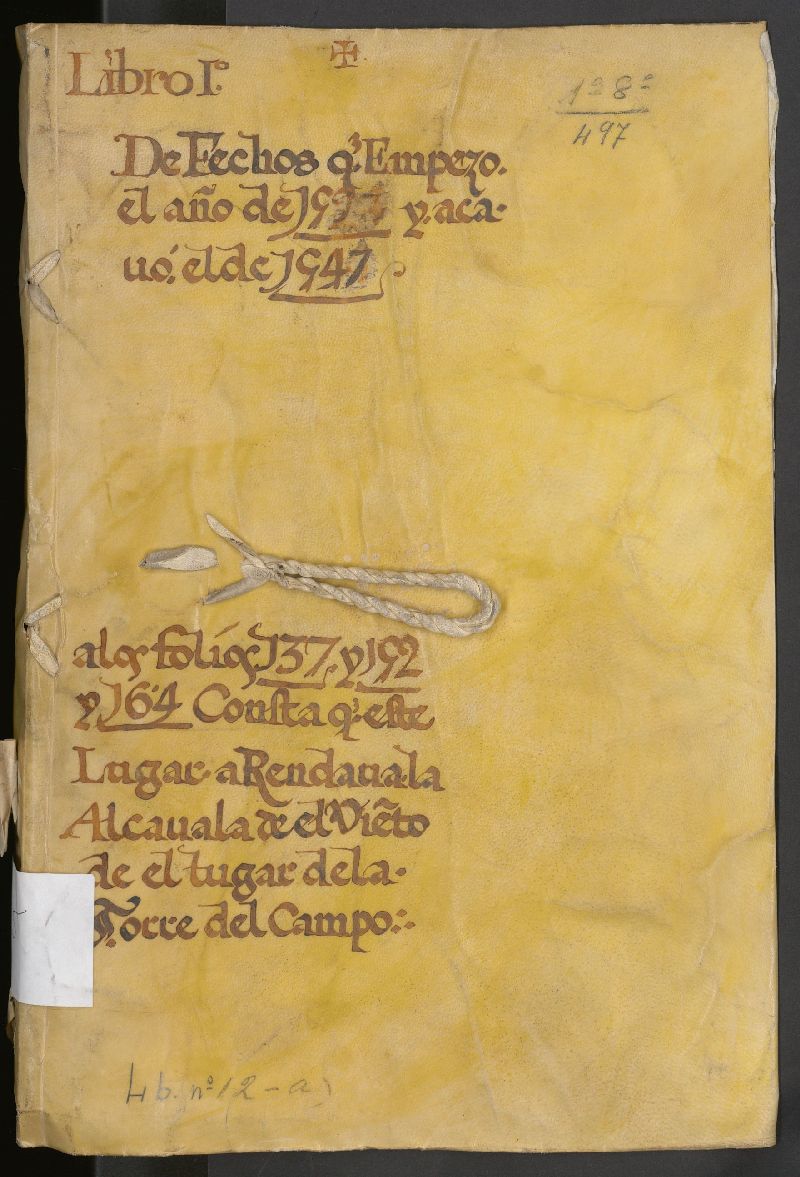 ✠
Libro I.º
1ª 8ª
497
De Fechos q.̃ Empezo.
el año de y. aca-
uó. el de 1547.
alos folios 137. y 152
y. 164 Consta q.̃ este
Lugar. aRendaua.la
Alcauala de el Viẽto
de el Lugar dela.
Torre del Campo:-
Lib. nº 1(2-a)